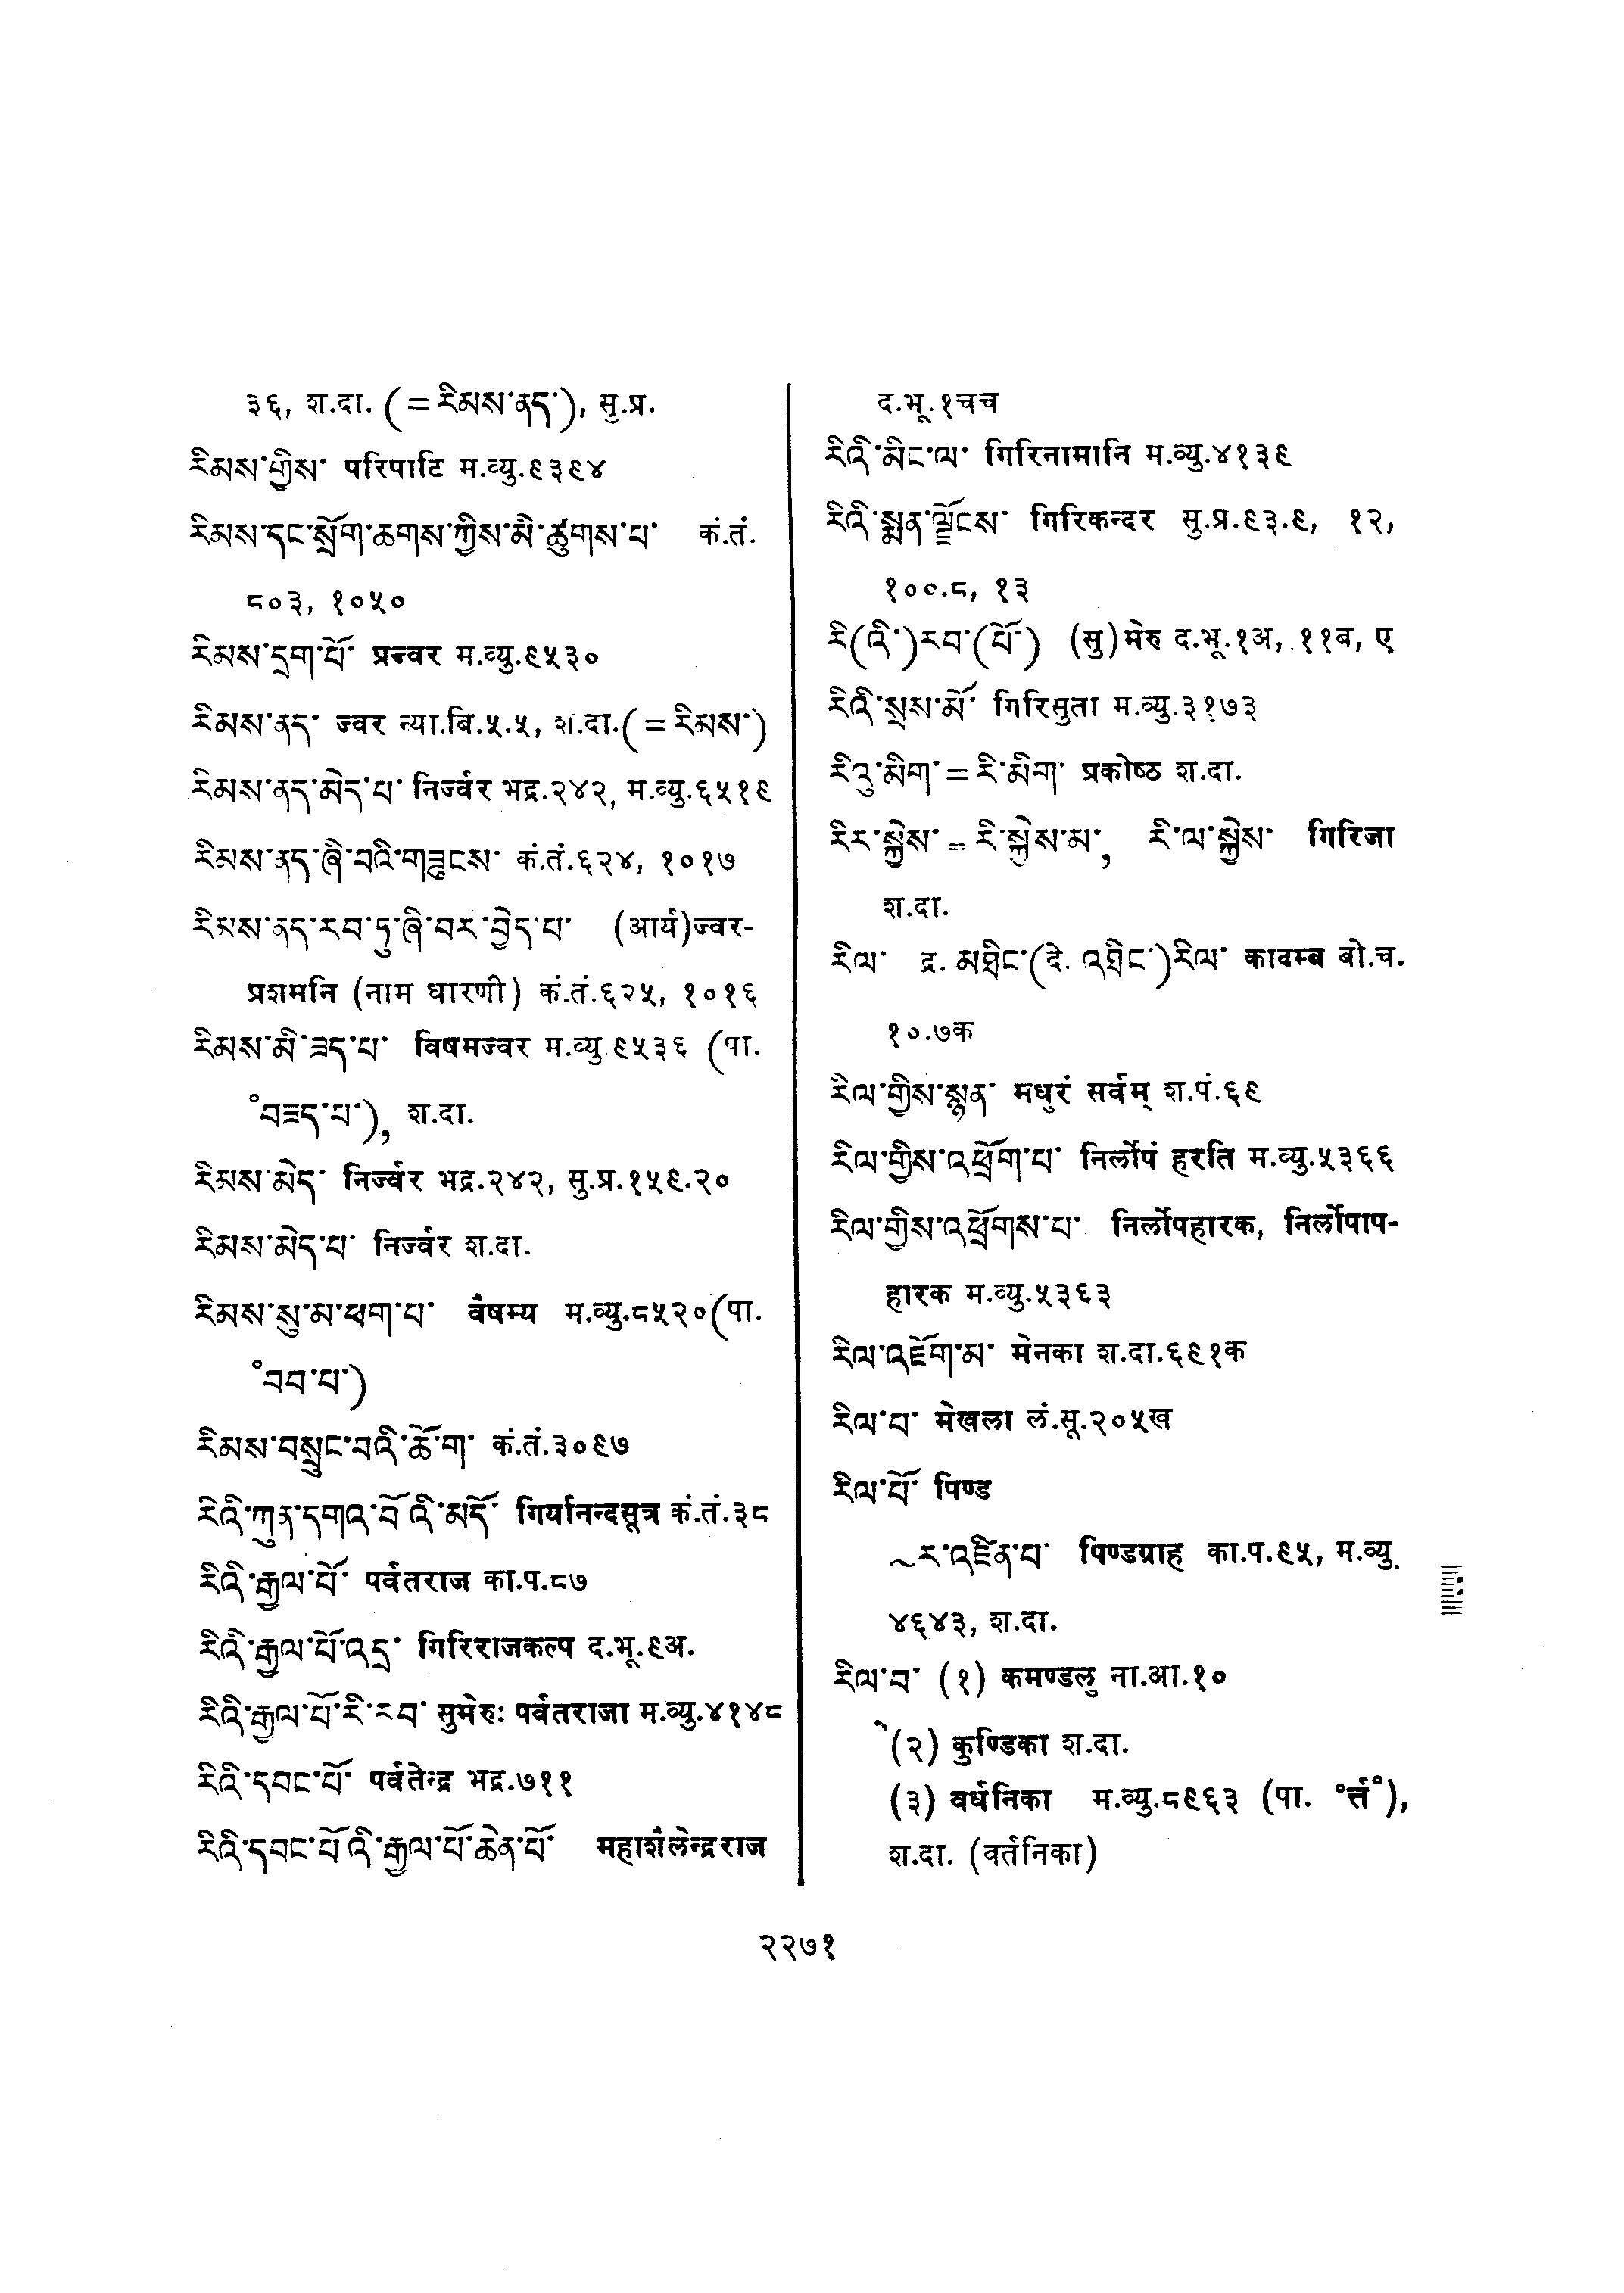 ३६, श.दा. (=རིམས་ནད་), सु.प्र.
རིམས་གྱིས་ परिपाटि म.व्यु.९३९४
རིམས་དང་སྲོག་ཆགས་ཀྱིས་མི་ཚུགས་པ་ कं.तं.
८०३, १०५०
རིམས་དྲག་པོ་ प्रज्वर म.व्यु.९५३०
རིམས་ནད་ ज्वर न्या.बि.५.५, श.दा.(=རིམས་)
རིམས་ནད་མེད་པ་ निर्ज्वर भद्र.२४२, म.व्यु.६५१९
རིམས་ནད་ཞི་བའི་གཟུངས་ कं.तं.६२४, १०१७
རིམས་ནད་རབ་ཏུ་ཞི་བར་བྱེད་པ་ (आर्य)ज्वर-
प्रशमनि (नाम धारणी) कं.तं.६२५, १०१६
རིམས་མི་ཟད་པ་ विषमज्वर म.व्यु.९५३६ (पा.
॰བཟད་པ་), श.दा.
རིམས་མེད་ निर्ज्वर भद्र.२४२, सु.प्र.१५९.२०
རིམས་མེད་པ་ निर्ज्वर श.दा.
རིམས་སུ་མ་ཕག་པ་ वैषम्य म.व्यु.८५२०(पा.
॰བབ་པ་)
རིམས་བསྲུང་བའི་ཆོ་ག་ कं.तं.३०९७
རིའི་ཀུན་དགའ་བོའི་མདོ་ गिर्यानन्दसूत्र कं.तं.३८
རིའི་རྒྱལ་པོ་ पर्वतराज का.प.८७
རིའི་རྒྱལ་པོ་འདྲ་ गिरिराजकल्प द.भू.९अ.
རིའི་རྒྱལ་པོ་རི་རབ་ सुमेरुः पर्वतराजा म.व्यु.४१४८
རིའི་དབང་པོ་ पर्वतेन्द्र भद्र.७११
རིའི་དབང་པོའི་རྒྱལ་པོ་ཆེན་པོ་ महाशैलेन्द्रराज
द.भू.१चच
རིའི་མིང་ལ་ गिरिनामानि म.व्यु.४१३९
རིའི་སྨན་ལྗོངས་ गिरिकन्दर सु.प्र.९३.९, १२,
१००.८, १३
རི(འི་)རབ་(པོ་) (सु)मेरु द.भू.१अ, ११ब, ए
རིའི་སྲས་མོ་ गिरिसुता म.व्यु.३१७३
རིའུ་མིག་=རི་མིག་ प्रकोष्ठ श.दा.
རིར་སྐྱེས་=རི་སྐྱེས་མ་, རི་ལ་སྐྱེས་ गिरिजा
श.दा.
རིལ་ द्र. མཐིང་(दे. འཐིང་)རིལ་ कादम्ब बो.च.
१०.७क
རིལ་གྱིས་སྙན་ मधुरं सर्वम् श.पं.६९
རིལ་གྱིས་འཕྲོག་པ་ निर्लोपं हरति म.व्यु.५३६६
རིལ་གྱིས་འཕྲོགས་པ་ निर्लोपहारक, निर्लोपाप-
हारक म.व्यु.५३६३
རིལ་འཇོག་མ་ मेनका श.दा.६९१क
རིལ་པ་ मेखला लं.सू.२०५ख
རིལ་པོ་ पिण्ड
~ར་འཛིན་པ་ पिण्डग्राह का.प.९५, म.व्यु.
४६४३, श.दा.
རིལ་བ་ (१) कमण्डलु ना.आ.१०
(२) कुण्डिका श.दा.
(३) वर्धनिका म.व्यु.८९६३ (पा. ॰र्त्त॰),
श.दा. (वर्तनिका)
२२७१